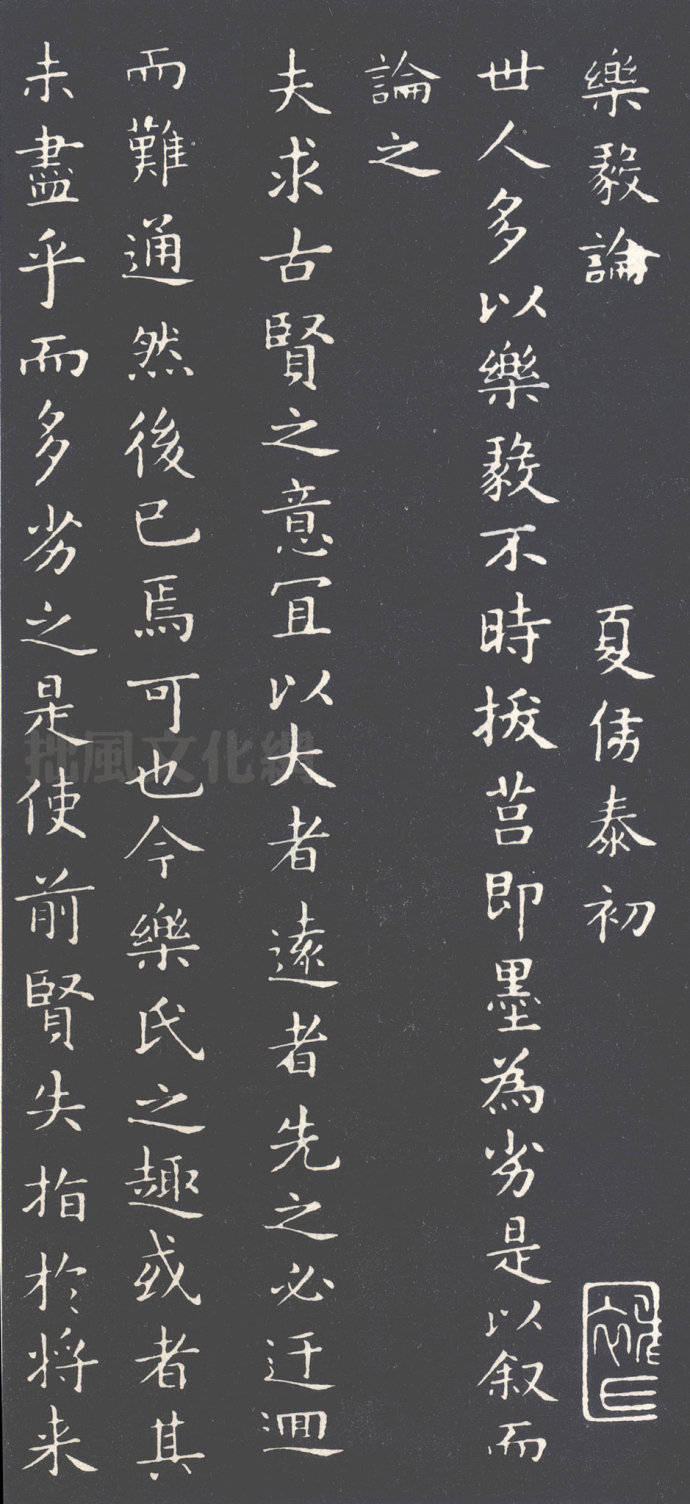 樂毅論 夏侯泰初
世人多以樂毅不時拔莒即墨為劣是以叙而
論之
夫求古賢之意冝以大者遠者先之必迂迴
而難通然後已焉可也今樂氏之趣或者其
未盡乎而多劣之是使前賢失指於将来
拙風文化網